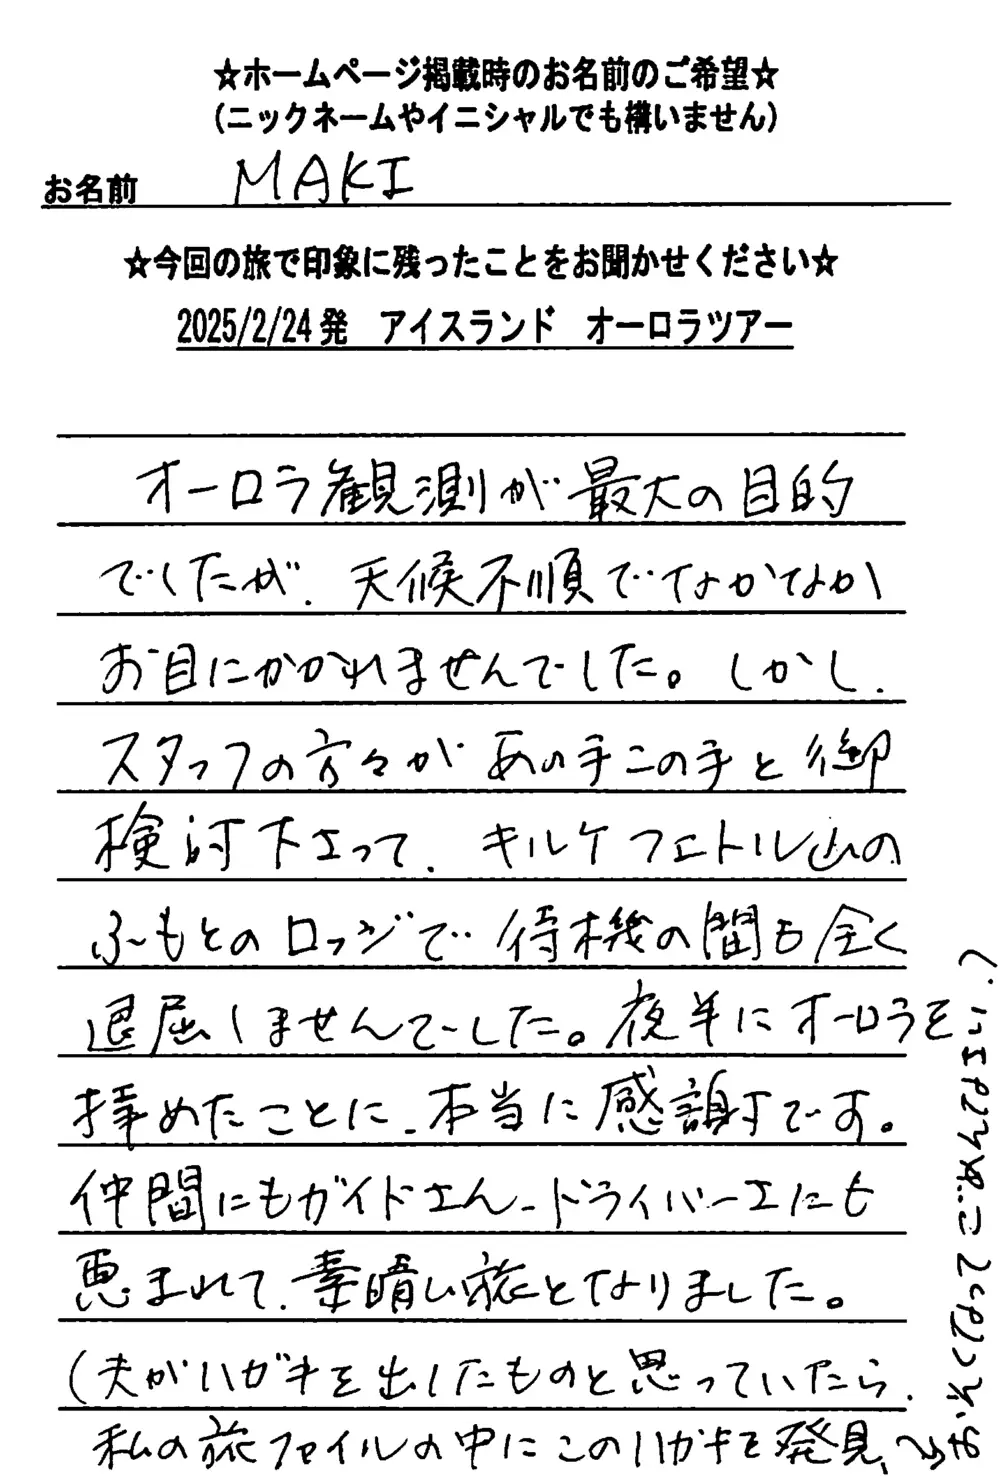 ☆ホームページ掲載時のお名前のご希望☆
(ニックネームやイニシャルでも構いません)
お名前 MAKI
☆今回の旅で印象に残ったことをお聞かせください☆
2025/2/24発 アイスランド オーロラツアー
オーロラ観測が最大の目的
でしたが、天候不順でなかなか
お目にかかれませんでした。しかし、
スタッフの方々があの手この手と御
検討下さって、キルケフェトル山の
ふもとのロッジで待機の間も全く
退屈しませんでした。夜半にオーロラを
拝めたことに、本当に感謝です。
仲間にもガイドさん、ドライバーさんにも
恵まれて、素晴しい旅となりました。
(夫がハガキを出したものと思っていたら、
私の旅ファイルの中にこのハガキを発見、
おそくなってごめんなさい!)